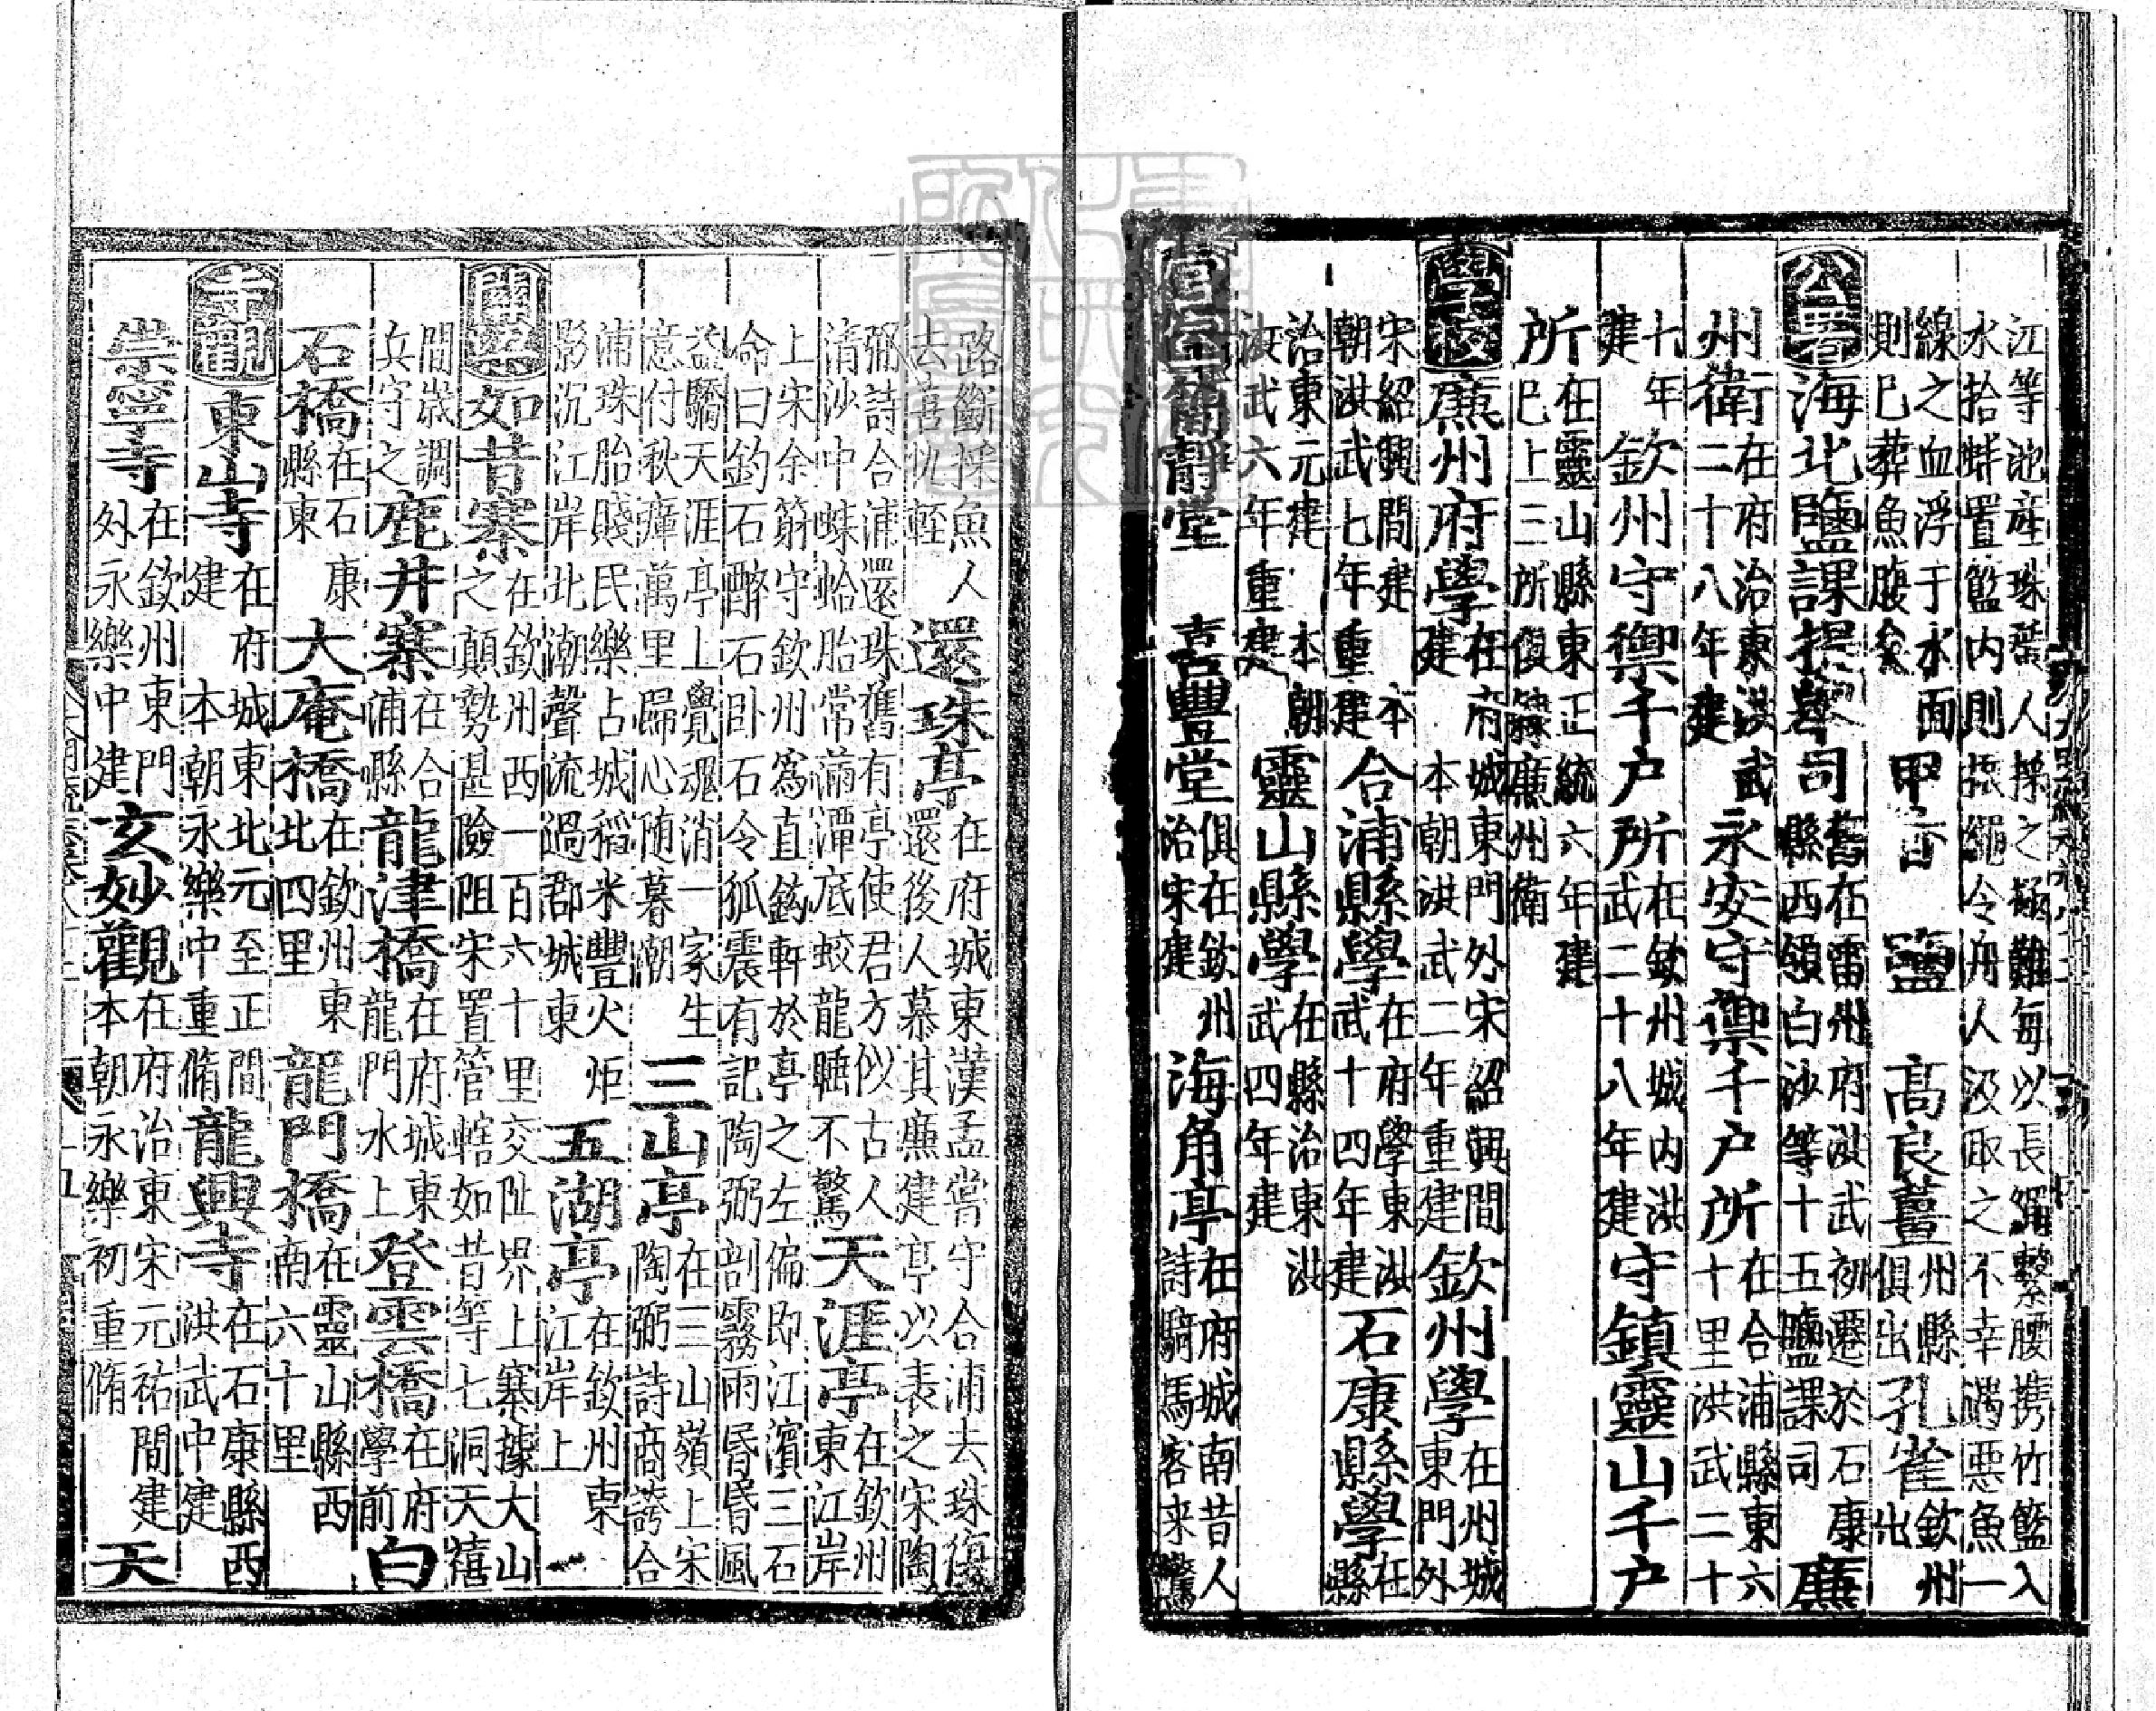 江等池產珠蜑人採之極難每以長繩繫腰携竹籃入
水拾蚌置籃內則振繩令舟人汲取之不幸遇惡魚一
線之血浮于水面
則已葬魚腹矣
甲香
鹽
高良薑州縣俱出
孔雀欽州出
公署
海北鹽課提舉司舊在雷州府洪武初遷於石康
縣西領白沙等十五鹽課司
廉
州衛在府治東洪武
二十八年建
永安守禦千戶所在合浦縣東六
十里洪武二十
七年
建
欽州守禦千戶所在欽州城內洪
武二十八年建
守鎮靈山千戶
所在靈山縣東正統六年建
已上三所俱隸廉州衛
學校
廉州府學在府城東門外宋紹興間
建本朝洪武二年重建
欽州學在州城
東門外
宋紹興間建本
朝洪武七年重建
合浦縣學在府學東洪
武十四年建
石康縣學在
縣
治東元建本朝
洪武六年重建
靈山縣學在縣治東洪
武四年建
宮室
靜堂
喜豐堂俱在欽州
治宋建
海角亭在府城南昔人
詩騎馬客来驚
路斷採魚人
去喜忱輕
還珠亭在府城東漢孟嘗守合浦去珠復
還後人慕其廉建亭以表之宋陶
弼詩合浦還珠舊有亭使君方似古人
清沙中蚌蛤胎常滿潭底蛟龍睡不驚
天涯亭在欽州
東江岸
上宋余篛守欽州為直鈎軒於亭之左偏即江濱三石
命曰釣石醉石臥石令狐震有記陶弼剖霧雨昏昏風
益驕天涯亭上覺魂消一家生
意付秋瘴萬里歸心随暮潮
三山亭在三山嶺上宋
陶弼詩商誇合
浦珠胎賤民樂占城稻米豐火炬
影沉江岸北潮聲流過郡城東
五湖亭在欽州東
江岸上
關梁
如昔寨在欽州西一百六十里交阯界上寨據大山
之顛勢甚險阻宋置管轄如昔等七洞天禧
間歲調
兵守之
鹿井寨在合
浦縣
龍津橋在府城東
龍門水上
登雲橋在府
學前
白
石橋在石康
縣東
大庵橋在欽州東
北四里
龍門橋在靈山縣西
南六十里
寺觀
東山寺在府城東北元至正間
建本朝永樂中重脩
龍興寺在石康縣西
洪武中建
崇寧寺在欽州東門
外永樂中建
玄妙觀在府治東宋元祐間建
本朝永樂初重脩
天